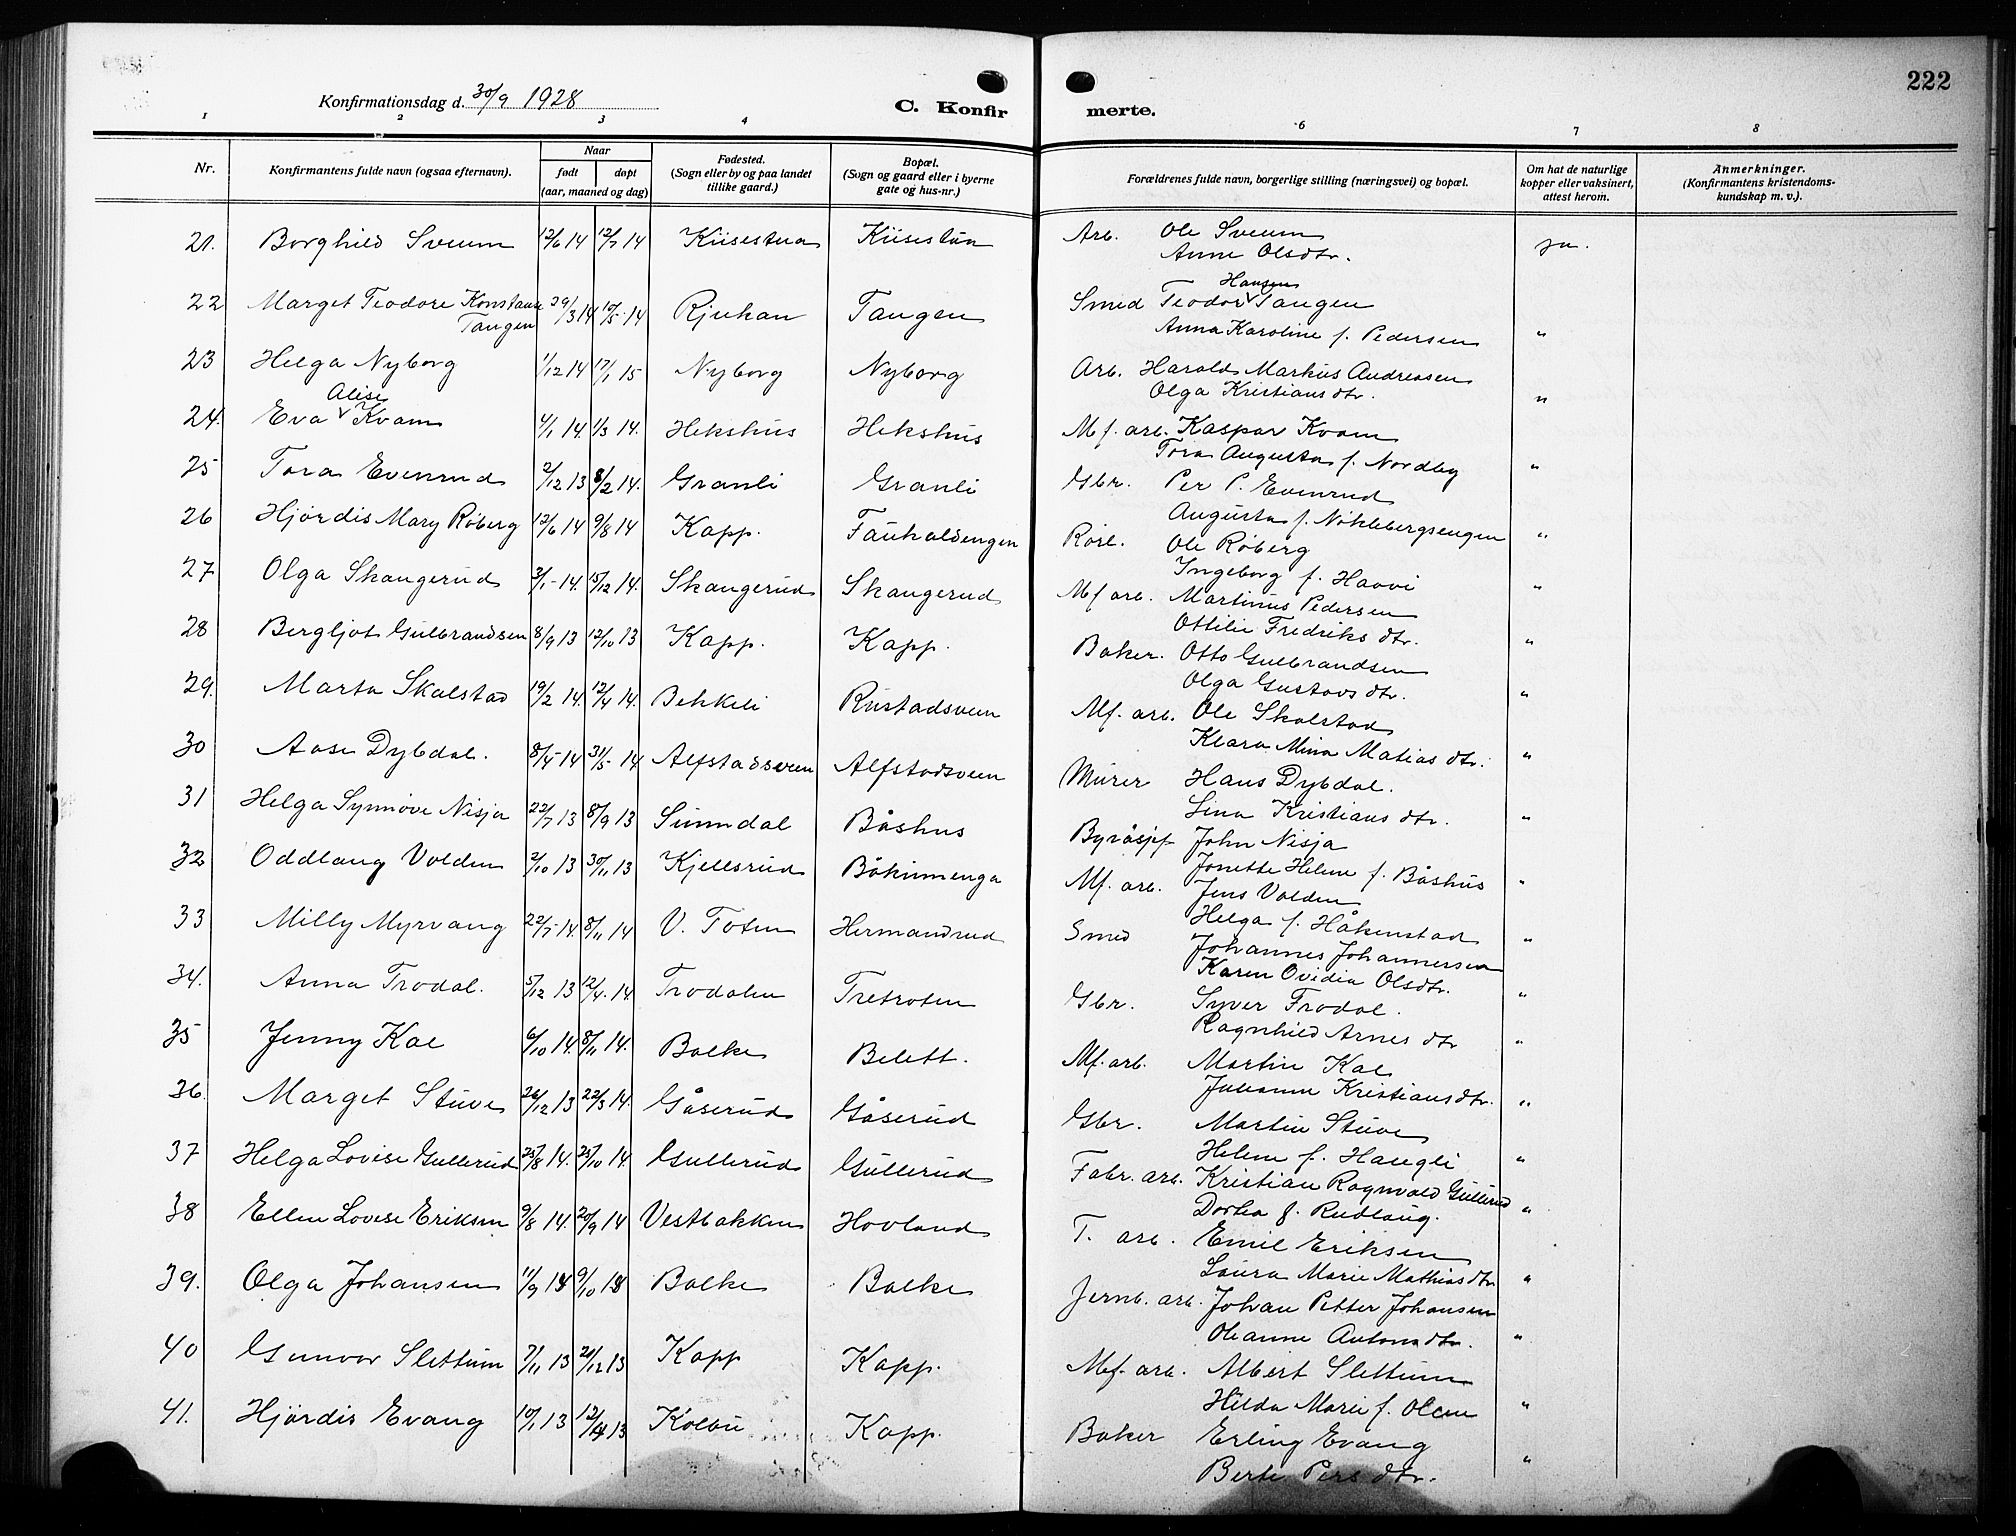 222
Konfirmationsdag d. 30/9 1928
C. Konfirmerte.
1 2 3 4 6 7 8
Nr.
Konfirmantens fulde navn (ogsaa efternavn).
Naar
født døpt
(aar, maaned og dag)
Fødested.
(Sogn eller by og paa landet
tillike gaard.)
Bopæl.
(Sogn og gaard eller i byerne
gate og hus-nr.)
Forældrenes fulde navn, borgerlige stilling (næringsvei) og bopæl.
Om hat de naturlige
kopper eller vaksinert,
attest herom.
Anmerkninger.
(Konfirmantens kristendoms-
kundskap m. v.).
21. Borghild Sveum 12/6 14 12/7 14 Kiisestua Kiisestua Arb. Ole Sveum ja.
Anne Olsdtr.
22 Marget Teodore Konstanse Tangen 29/3 14 10/5 14 Rjukan Tangen Smed Teodor Hansen Tangen
Anna Karoline f. Pedersen "
23 Helga Nyborg 1/12 14 17/1 15 Nyborg Nyborg Arb. Harald Markus Andreasen
Olga Kristiansdtr. "
24. Eva Alise Kvam 4/1 14. 1/3 14. Hekshus Hekshus Mf. arb. Kaspar Kvam
Tora Augusta f. Nordby "
25 Tora Evenrud 2/12 13 8/2 14. Granli Granli Gbr. Per P. Evenrud
Augusta f. Nøklebergsengen "
26 Hjørdis Mary Røberg 12/6 14 9/8 14 Kapp. Fauhaldengen Rørl. Ole Røberg
Ingeborg f. Haovi "
27 Olga Skangerud 3/1 14. 15/12 14. Skangerud Skangerud Mf arb. Martinus Pedersen
Ottilie Fredriks dtr. "
28 Bergljot Gulbrandsen 8/9 13 12/10 13 Kapp. Kapp. Baker. Otto Gulbrandsen
Olga Gustavs dtr. "
29. Marta Skalstad 19/2 14. 12/4 14. Bekkeli Rustadsveen Mf. arb. Ole Skalstad
Klara Mina Matias dtr. "
30 Aase Dybdal. 8/4 14 31/5 14 Alfstadsveen Alfstadsveen Murer Hans Dybdal.
Lina Kristians dtr. "
31 Helga Synnøve Nisja 22/7 13 8/9 13 Sunndal Båshus Byråsjef John Nisja
Jonette Helene f. Båshus "
32 Oddlaug Volden 2/10 13 30/11 13 Kjellsrud Båkinnenga Mf. arb. Jens Volden
Helga f. Håkenstad "
33 Milly Myrvang 22/7 14. 8/11 14 V. Toten Hermandrud Smed Johannes Johannersen
Karen Ovidia Olsdtr. "
34. Anna Trodal. 5/12 13 12/4 14 Trodalen Tretoten Gbr. Syver Trodal.
Ragnhild Arnes dtr "
35 Jenny Kae 6/10 14. 8/11 14. Balke Belett. Mf. arb. Martin Kae
Julianne Kristiansdtr. "
36 Marget Stuve 26/12 13 22/3 14. Gåserud Gåserud Gbr. Martin Stuve
Helene f. Haugli "
37 Helga Lovise Gullerud 25/8 14. 25/10 14. Gullerud Gullerud Fabr. arb. Kristian Ragnvald Gullerud
Dortea f. Rudlaug. "
38 Ellen Lovise Eriksen 9/8 14. 20/9 14 Vestbakken Hovland T. arb. Emil Eriksen
Laura Marie Mathiasdtr "
39. Olga Johansen 11/9 13 9/10 13 Balke Balke Jernb. arb. Johan Petter Johansen
Oleanne Antonsdtr. "
40 Gunvor Slettum 7/11 13 21/12 13 Kapp Kapp. Mf. arb. Albert Slettum
Hilda Marie f. Olsen "
41. Hjørdis Evang 10/1 13 12/4 13 Kolbu Kapp. Baker Erling Evang
Berte Pers dtr. "